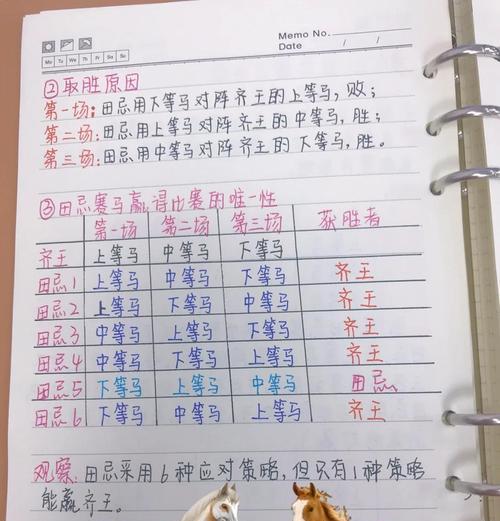 Memo No.
Mo Tu We Th Fr Sa Su
Date / /
②取胜原因
第一场:田忌用下等马对阵齐王的上等马,败;
第二场:田忌用上等马对阵齐王的中等马,胜;
第三场:田忌用中等马对阵齐王的下等马,胜。
③田忌赛马赢得比赛的唯一性
第一场 第二场 第三场 获胜者
齐王 上等马 中等马 下等马
田忌1 上等马 中等马 下等马 齐王
田忌2 上等马 下等马 中等马 齐王
田忌3 中等马 上等马 下等马 齐王
田忌4 中等马 下等马 上等马 齐王
田忌5 下等马 上等马 中等马 田忌
田忌6 下等马 中等马 上等马 齐王
观察:田忌采用6种应对策略,但只有1种策略
能赢齐王。